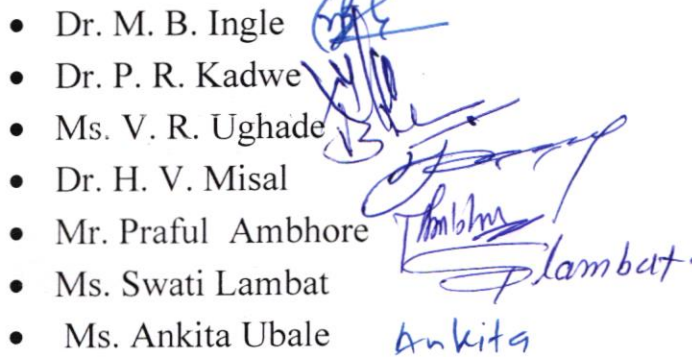 • Dr. M. B. Ingle
• Dr. P. R. Kadwe
• Ms. V. R. Ughade
• Dr. H. V. Misal
• Mr. Praful Ambhore
• Ms. Swati Lambat Slambat.
• Ms. Ankita Ubale Ankita